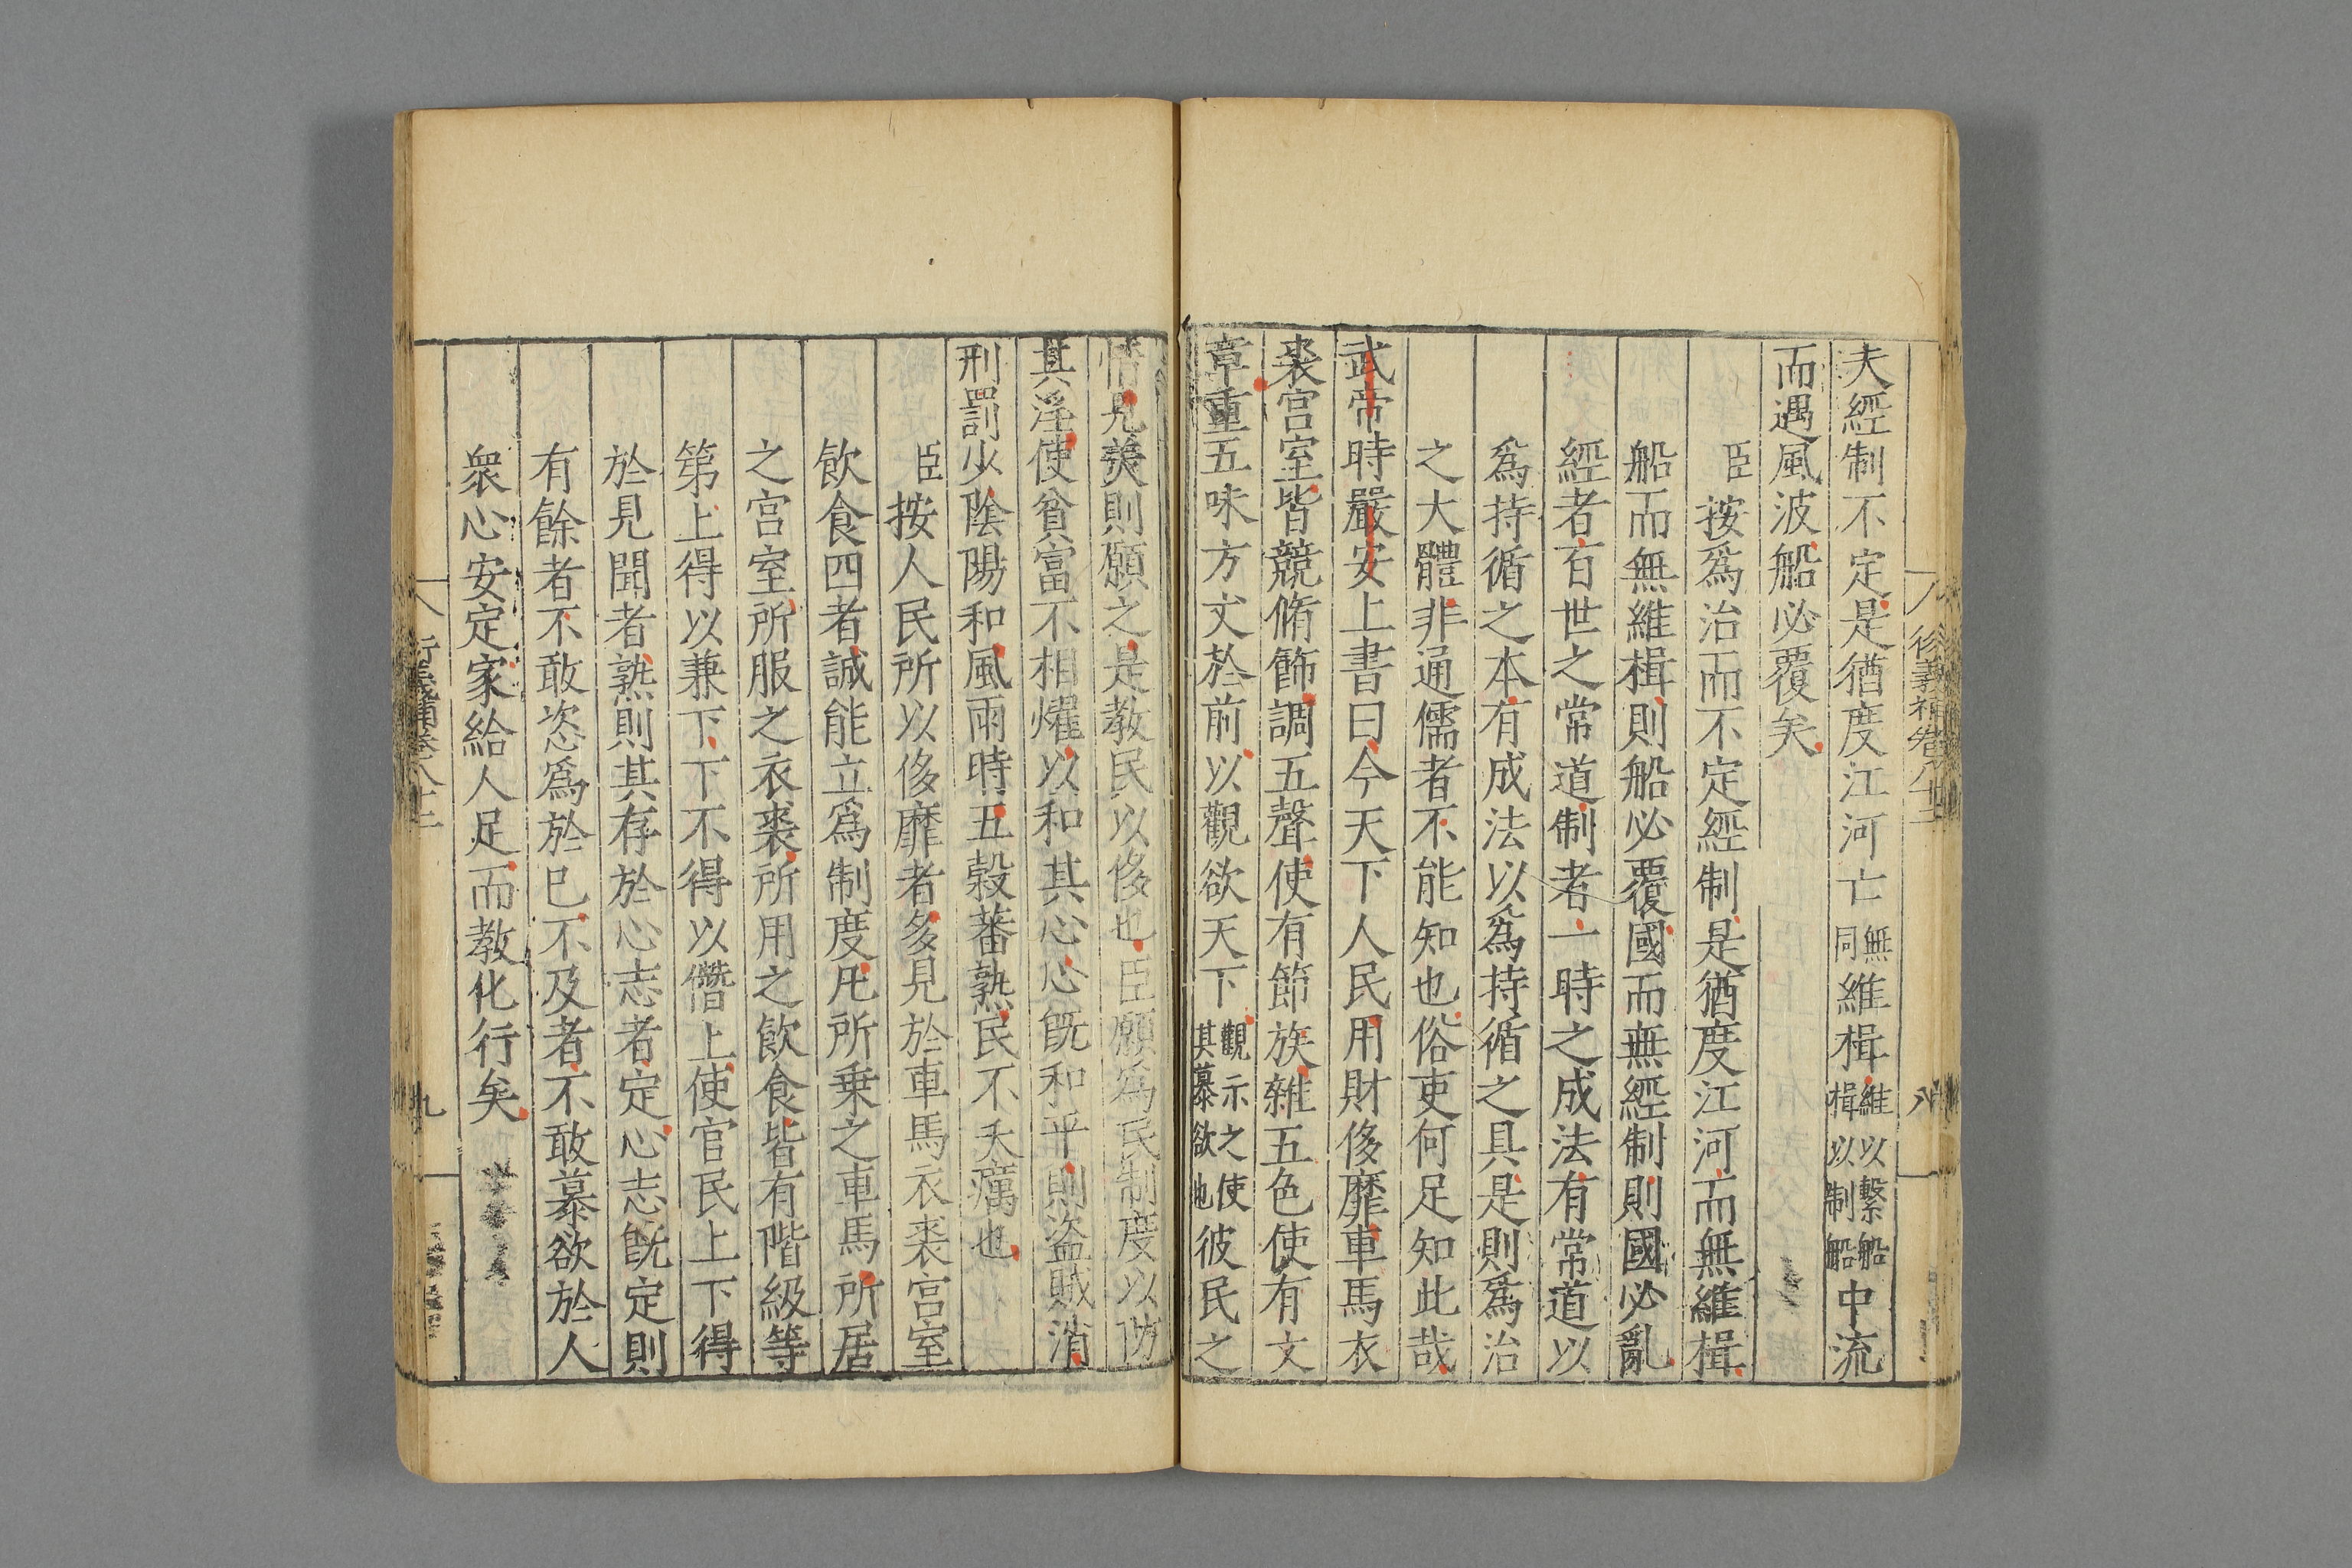 夫經制不定是猶度江河亡無同維楫維以繫船楫以制船中流
而遇風波船必覆矣
臣按爲治而不定經制是猶度江河而無維楫
船而無維楫則船必覆國而無經制則國必亂
經者百世之常道制者一時之成法有常道以
爲持循之本有成法以爲持循之具是則爲治
之大體非通儒者不能知也俗吏何足知此哉
武帝時嚴安上書曰今天下人民用財侈靡車馬衣
裘宫室皆競脩飾調五聲使有節族雜五色使有文
章重五味方丈於前以觀欲天下觀示之使其慕欲也彼民之
情見羙則願之是教民以侈也臣願爲民制度以防
其淫使貧富不相燿以和其心心旣和平則盜賊消
刑罰少陰陽和風雨時五榖蕃熟民不夭癘也
臣按人民所以侈靡者多見於車馬衣裘宫室
飲食四者誠能立爲制度凡所乗之車馬所居
之宫室所服之衣裘所用之飲食皆有階級等
第上得以兼下下不得以僭上使官民上下得
於見聞者熟則其存於心志者定心志旣定則
有餘者不敢恣爲於已不及者不敢慕欲於人
衆心安定家給人足而教化行矣
衍義補卷八十二
九